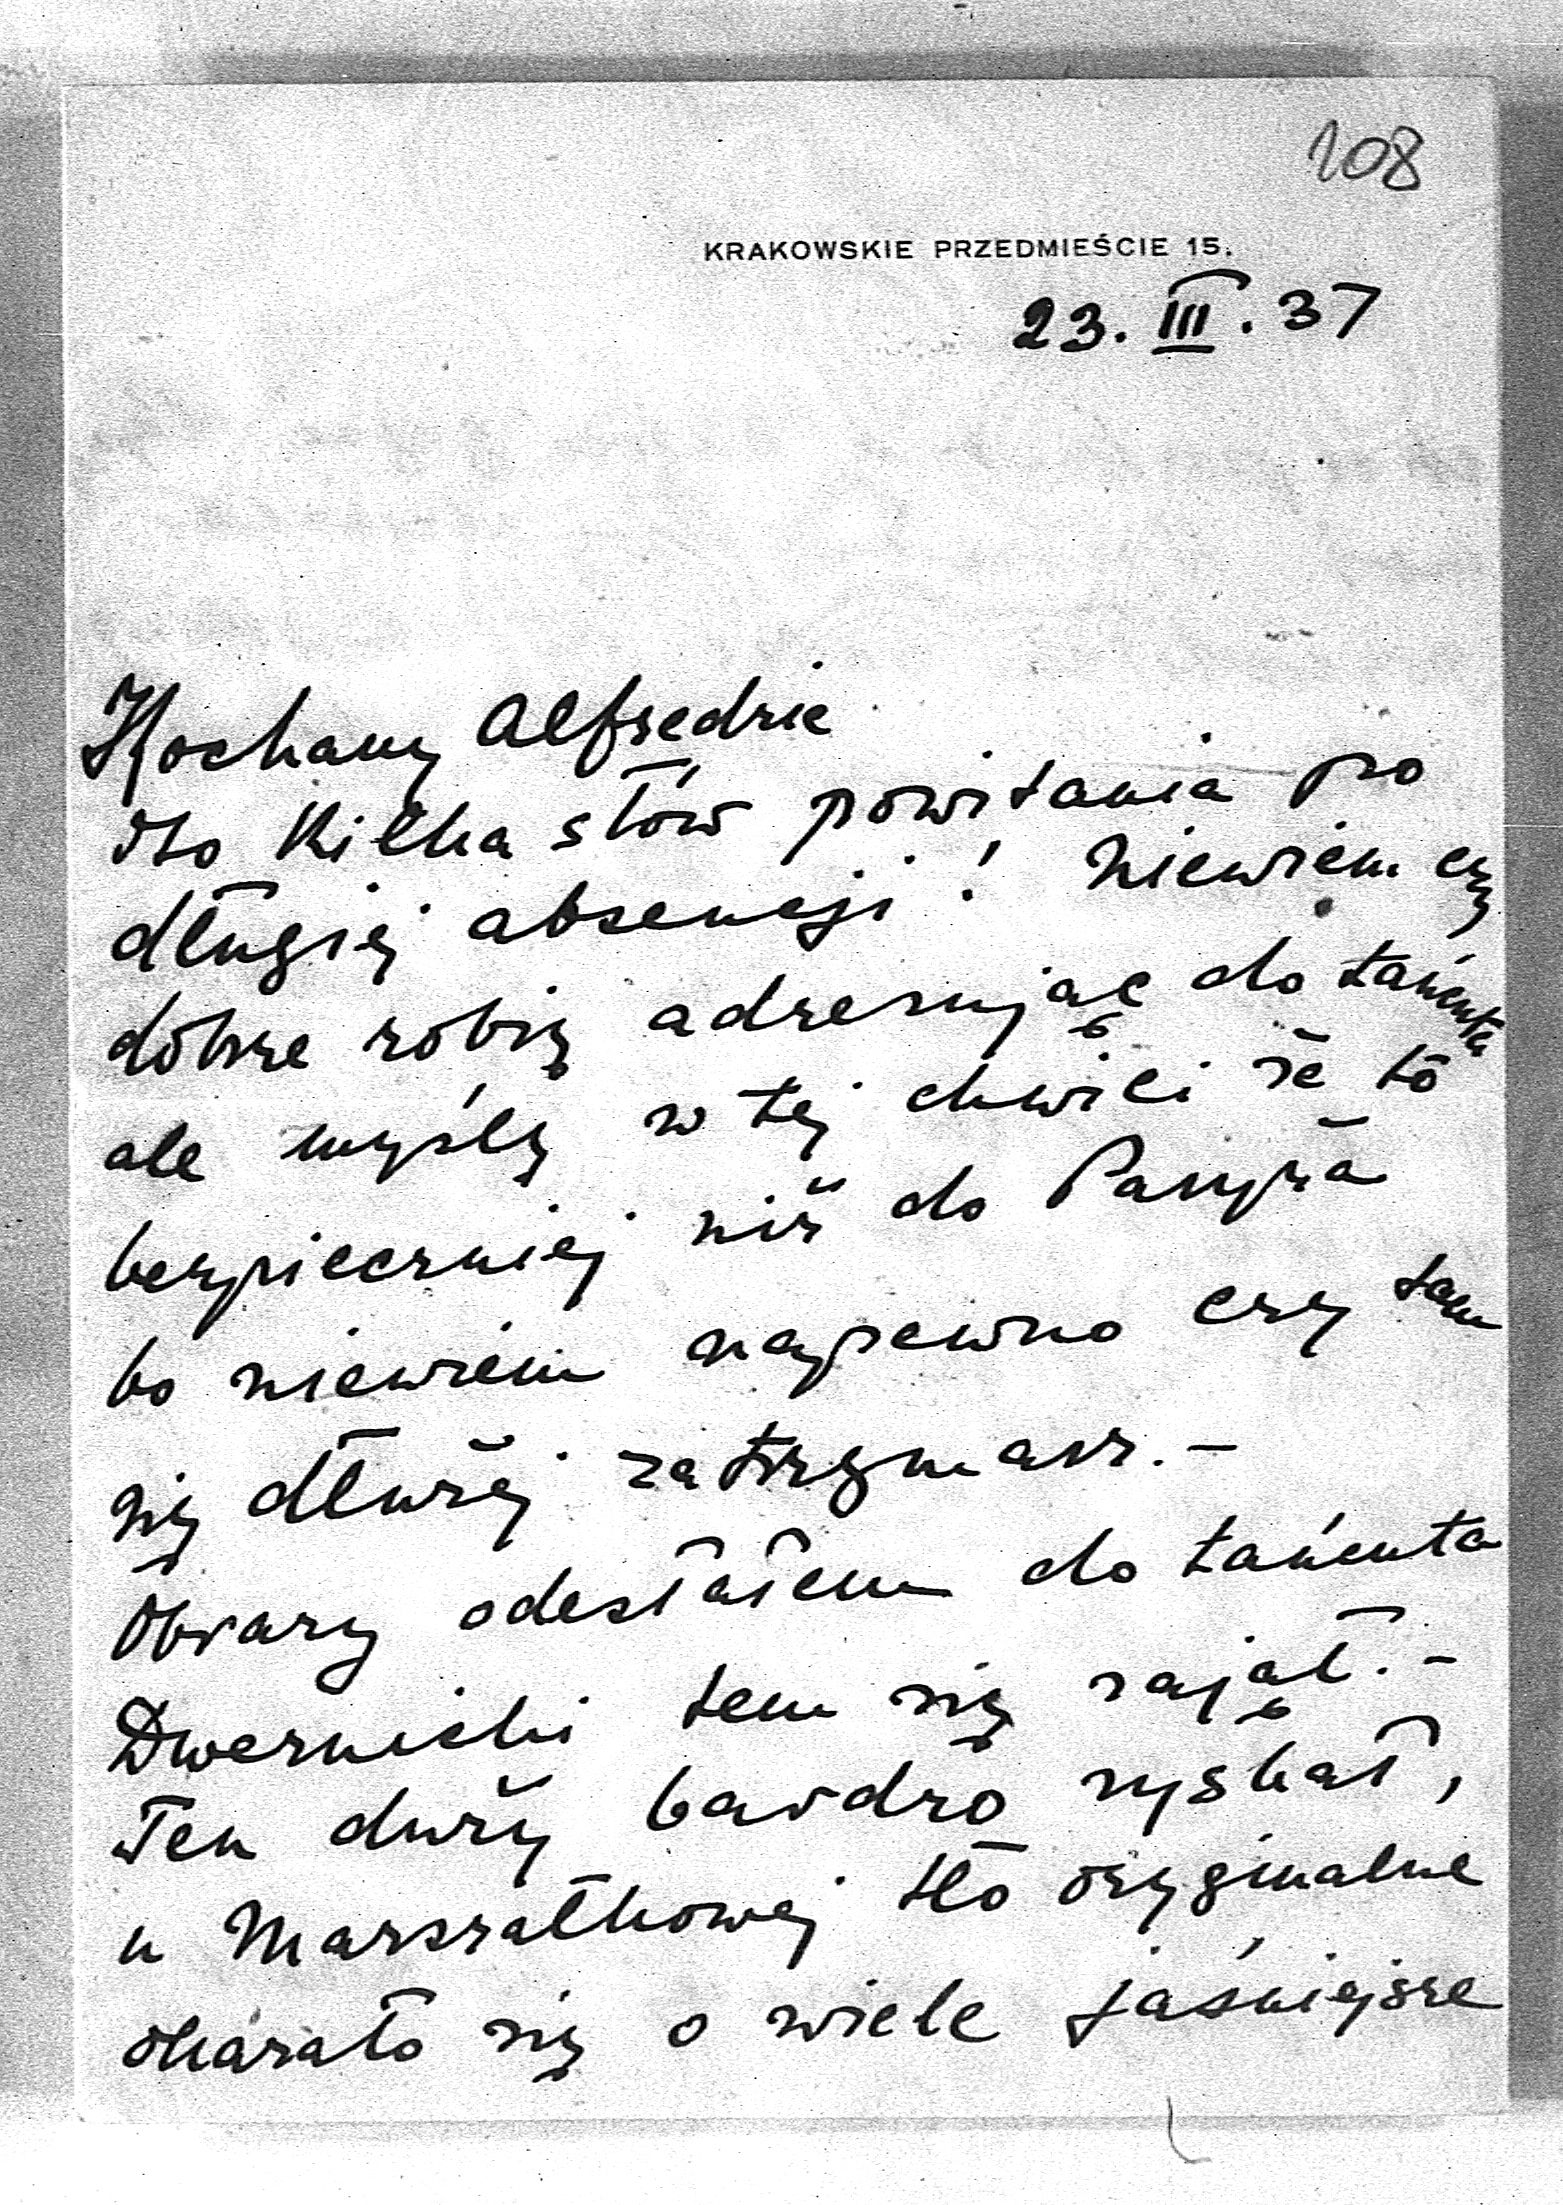 108
KRAKOWSKIE PRZEDMIEŚCIE 15.
23. III. 37
Kochany Alfredzie
Oto kilka słów powitania po
długiej absencji! Niewiem czy
dobrze robię adresując do Łańcuta
ale myślę w tej chwili że to
bezpieczniej niż do Paryża
bo niewiem napewno czy tam
się dłużej zatrzymasz. –
Obrazy odesłałem do Łańcuta
Dwernicki tem się zajął. –
Ten duży bardzo zyskał,
u Marszałkowej tło oryginalne
okazało się o wiele jaśniejsze